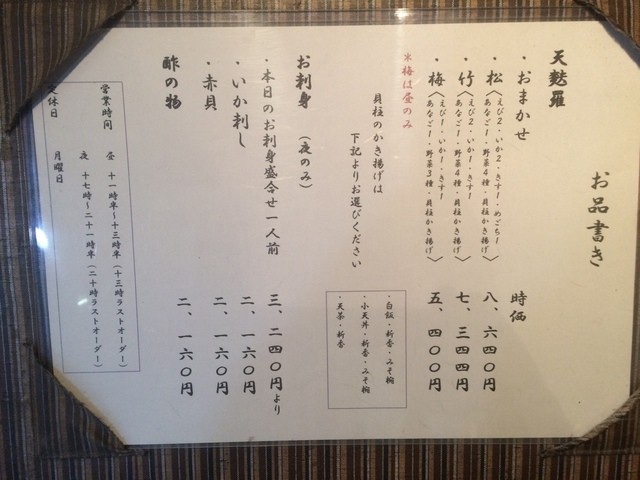 お品書き
天麩羅
・おまかせ 時価
・松〈えび2・いか2・きす1・めごち1・あなご1・野菜4種・貝柱かき揚げ〉 八、六四〇円
・竹〈えび2・いか1・きす1・あなご1・野菜4種・貝柱かき揚げ〉 七、三四四円
・梅〈えび1・いか1・きす1・あなご1・野菜3種・貝柱かき揚げ〉 五、四〇〇円
※梅は昼のみ
貝柱のかき揚げは
下記よりお選びください
・白飯・新香・みそ椀
・小天丼・新香・みそ椀
・天茶・新香
お刺身（夜のみ）
・本日のお刺身盛合せ一人前 三、二四〇円より
・いか刺し 二、一六〇円
・赤貝 二、一六〇円
酢の物 二、一六〇円
営業時間 昼 十一時半～十三時半（十三時ラストオーダー）
夜 十七時～二十一時半（二十時ラストオーダー）
定休日 月曜日